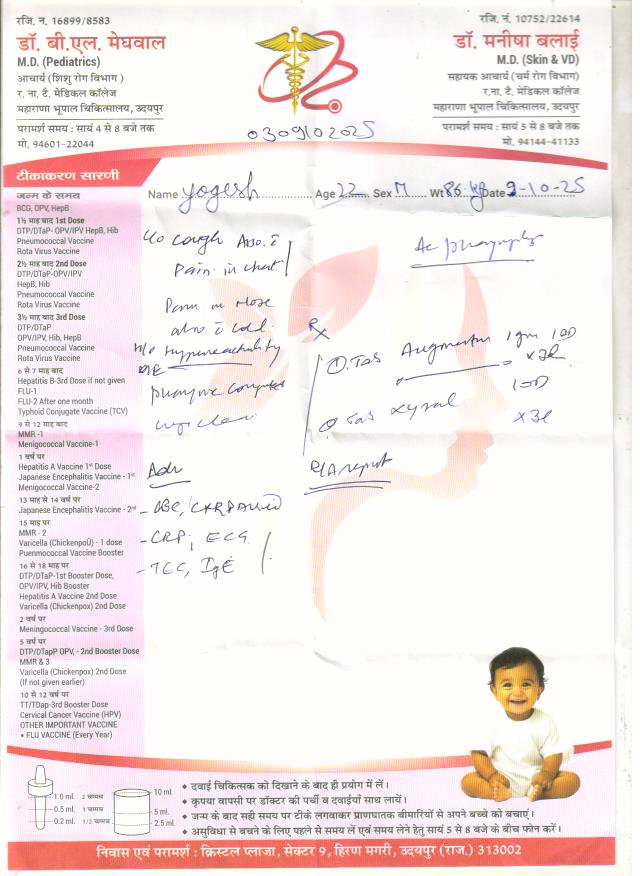 रजि. न. 16899/8583
डॉ. बी.एल. मेघवाल
M.D. (Pediatrics)
आचार्य (शिशु रोग विभाग)
र. ना. टै. मेडिकल कॉलेज
महाराणा भूपाल चिकित्सालय, उदयपुर
परामर्श समय : सायं 4 से 8 बजे तक
मो. 94601-22044
रजि. नं. 10752/22614
डॉ. मनीषा बलाई
M.D. (Skin & VD)
सहायक आचार्य (चर्म रोग विभाग)
र.ना. टै. मेडिकल कॉलेज
महाराणा भूपाल चिकित्सालय, उदयपुर
परामर्श समय : सायं 5 से 8 बजे तक
मो. 94144-41133
0309102025
टीकाकरण सारणी
Name Yogesh Age 22 Sex M Wt 86 kg Date 9-10-25
जन्म के समय
BCG, OPV, HepB
1½ माह बाद 1st Dose
DTP/DTaP- OPV/IPV HepB, Hib
Pneumococcal Vaccine
Rota Virus Vaccine
2½ माह बाद 2nd Dose
DTP/DTaP-OPV/IPV
HepB, Hib
Pneumococcal Vaccine
Rota Virus Vaccine
3½ माह बाद 3rd Dose
DTP/DTaP
OPV/IPV, Hib, HepB
Pneumococcal Vaccine
Rota Virus Vaccine
6 से 7 माह बाद
Hepatitis B-3rd Dose if not given
FLU-1
FLU-2 After one month
Typhoid Conjugate Vaccine (TCV)
9 से 12 माह बाद
MMR -1
Menigococcal Vaccine-1
1 वर्ष पर
Hepatitis A Vaccine 1st Dose
Japanese Encephalitis Vaccine - 1st
Menigococcal Vaccine-2
13 माह से 14 वर्ष पर
Japanese Encephalitis Vaccine - 2nd
15 माह पर
MMR - 2
Varicella (ChickenpoÛ) - 1 dose
Puenmococcal Vaccine Booster
16 से 18 माह पर
DTP/DTaP-1st Booster Dose,
OPV/IPV, Hib Booster
Hepatitis A Vaccine 2nd Dose
Varicella (Chickenpox) 2nd Dose
2 वर्ष पर
Meningococcal Vaccine - 3rd Dose
5 वर्ष पर
DTP/DTapP OPV, - 2nd Booster Dose
MMR & 3
Varicella (Chickenpox) 2nd Dose
(If not given earlier)
10 से 12 वर्ष पर
TT/TDap-3rd Booster Dose
Cervical Cancer Vaccine (HPV)
OTHER IMPORTANT VACCINE
• FLU VACCINE (Every Year)
c/o cough Asso. c̄
Pain in chest
Pain in Nose
also c̄ cold
H/o Hyperreactivity
O/E
pharynx congested
Adv
- CBC, CXR PA view
- CRP, ECG
- TEC, IgE
Ac pharyngitis
Rx
① Tab Augmentin 1gm 1OD
x3d
② Tab Xyzal 1OD
x3d
R/A report
1.0 ml. 2 चम्मच
0.5 ml. 1 चम्मच
0.2 ml. 1/2 चम्मच
10 ml.
5 ml.
2.5 ml.
♦ दवाई चिकित्सक को दिखाने के बाद ही प्रयोग में लें।
♦ कृपया वापसी पर डॉक्टर की पर्ची व दवाईयाँ साथ लायें।
♦ जन्म के बाद सही समय पर टीके लगवाकर प्राणघातक बीमारियों से अपने बच्चे को बचाएं।
♦ असुविधा से बचने के लिए पहले से समय लें एवं समय लेने हेतु सायं 5 से 8 बजे के बीच फोन करें।
निवास एवं परामर्श : क्रिस्टल प्लाजा, सेक्टर 9, हिरण मगरी, उदयपुर (राज.) 313002